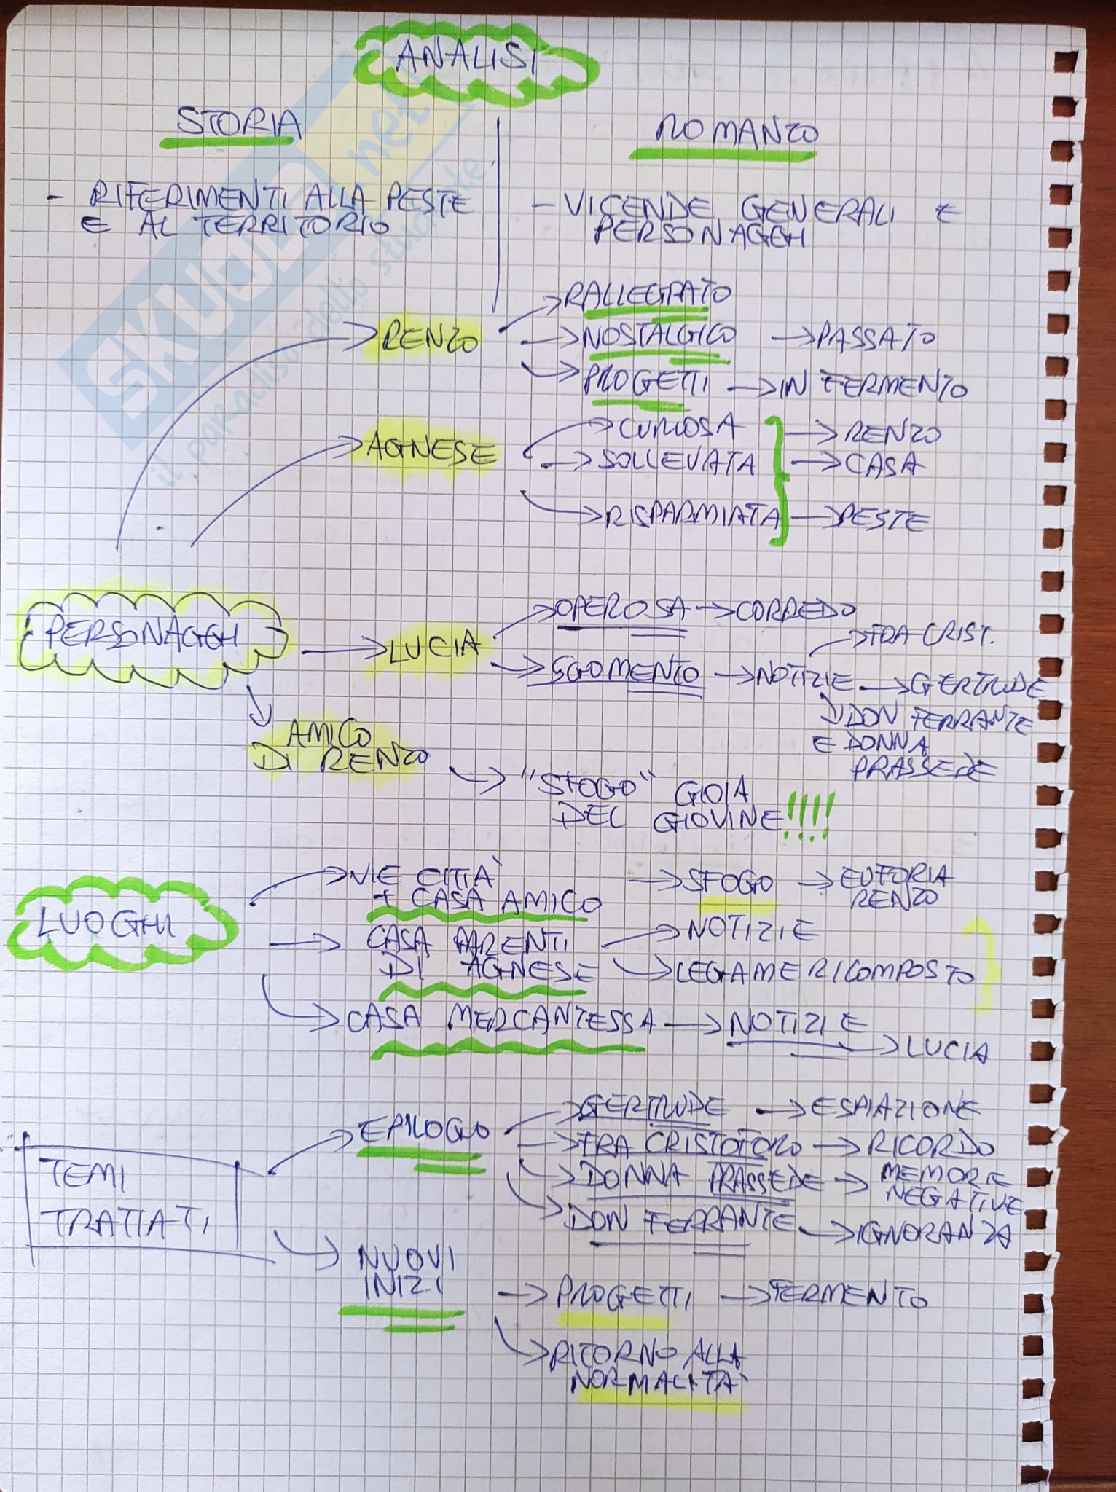 ANALISI
STORIA
ROMANZO
- RIFERIMENTI ALLA PESTE
E AL TERRITORIO
- VICENDE GENERALI E
PERSONAGGI
RENZO
→ RALLEGRATO
→ NOSTALGICO → PASSATO
→ PROGETTI → IN FERMENTO
AGNESE
→ CURIOSA → RENZO
→ SOLLEVATA → CASA
→ RISPARMIATA → PESTE
PERSONAGGI
→ LUCIA
→ OPEROSA → CORREDO
→ SGOMENTO → NOTIZIE → FRA CRIST.
→ GERTRUDE
→ DON FERRANTE
E DONNA
PRASSEDE
AMICO
DI RENZO
→ "SFOGO" GIOIA
DEL GIOVINE!!!!
LUOGHI
→ VIE CITTÀ
+ CASA AMICO
→ SFOGO → EUFORIA
RENZO
→ CASA PARENTI
DI AGNESE
→ NOTIZIE
→ LEGAME RICOMPOSTO
→ CASA MERCANTESSA → NOTIZIE
→ LUCIA
TEMI
TRATTATI
→ EPILOGO
→ GERTRUDE → ESPIAZIONE
→ FRA CRISTOFORO → RICORDO
→ DONNA PRASSEDE → MEMORIE
NEGATIVE
→ DON FERRANTE → IGNORANZA
→ NUOVI
INIZI
→ PROGETTI → FERMENTO
→ RITORNO ALLA
NORMALITÀ
SKUOLA.net